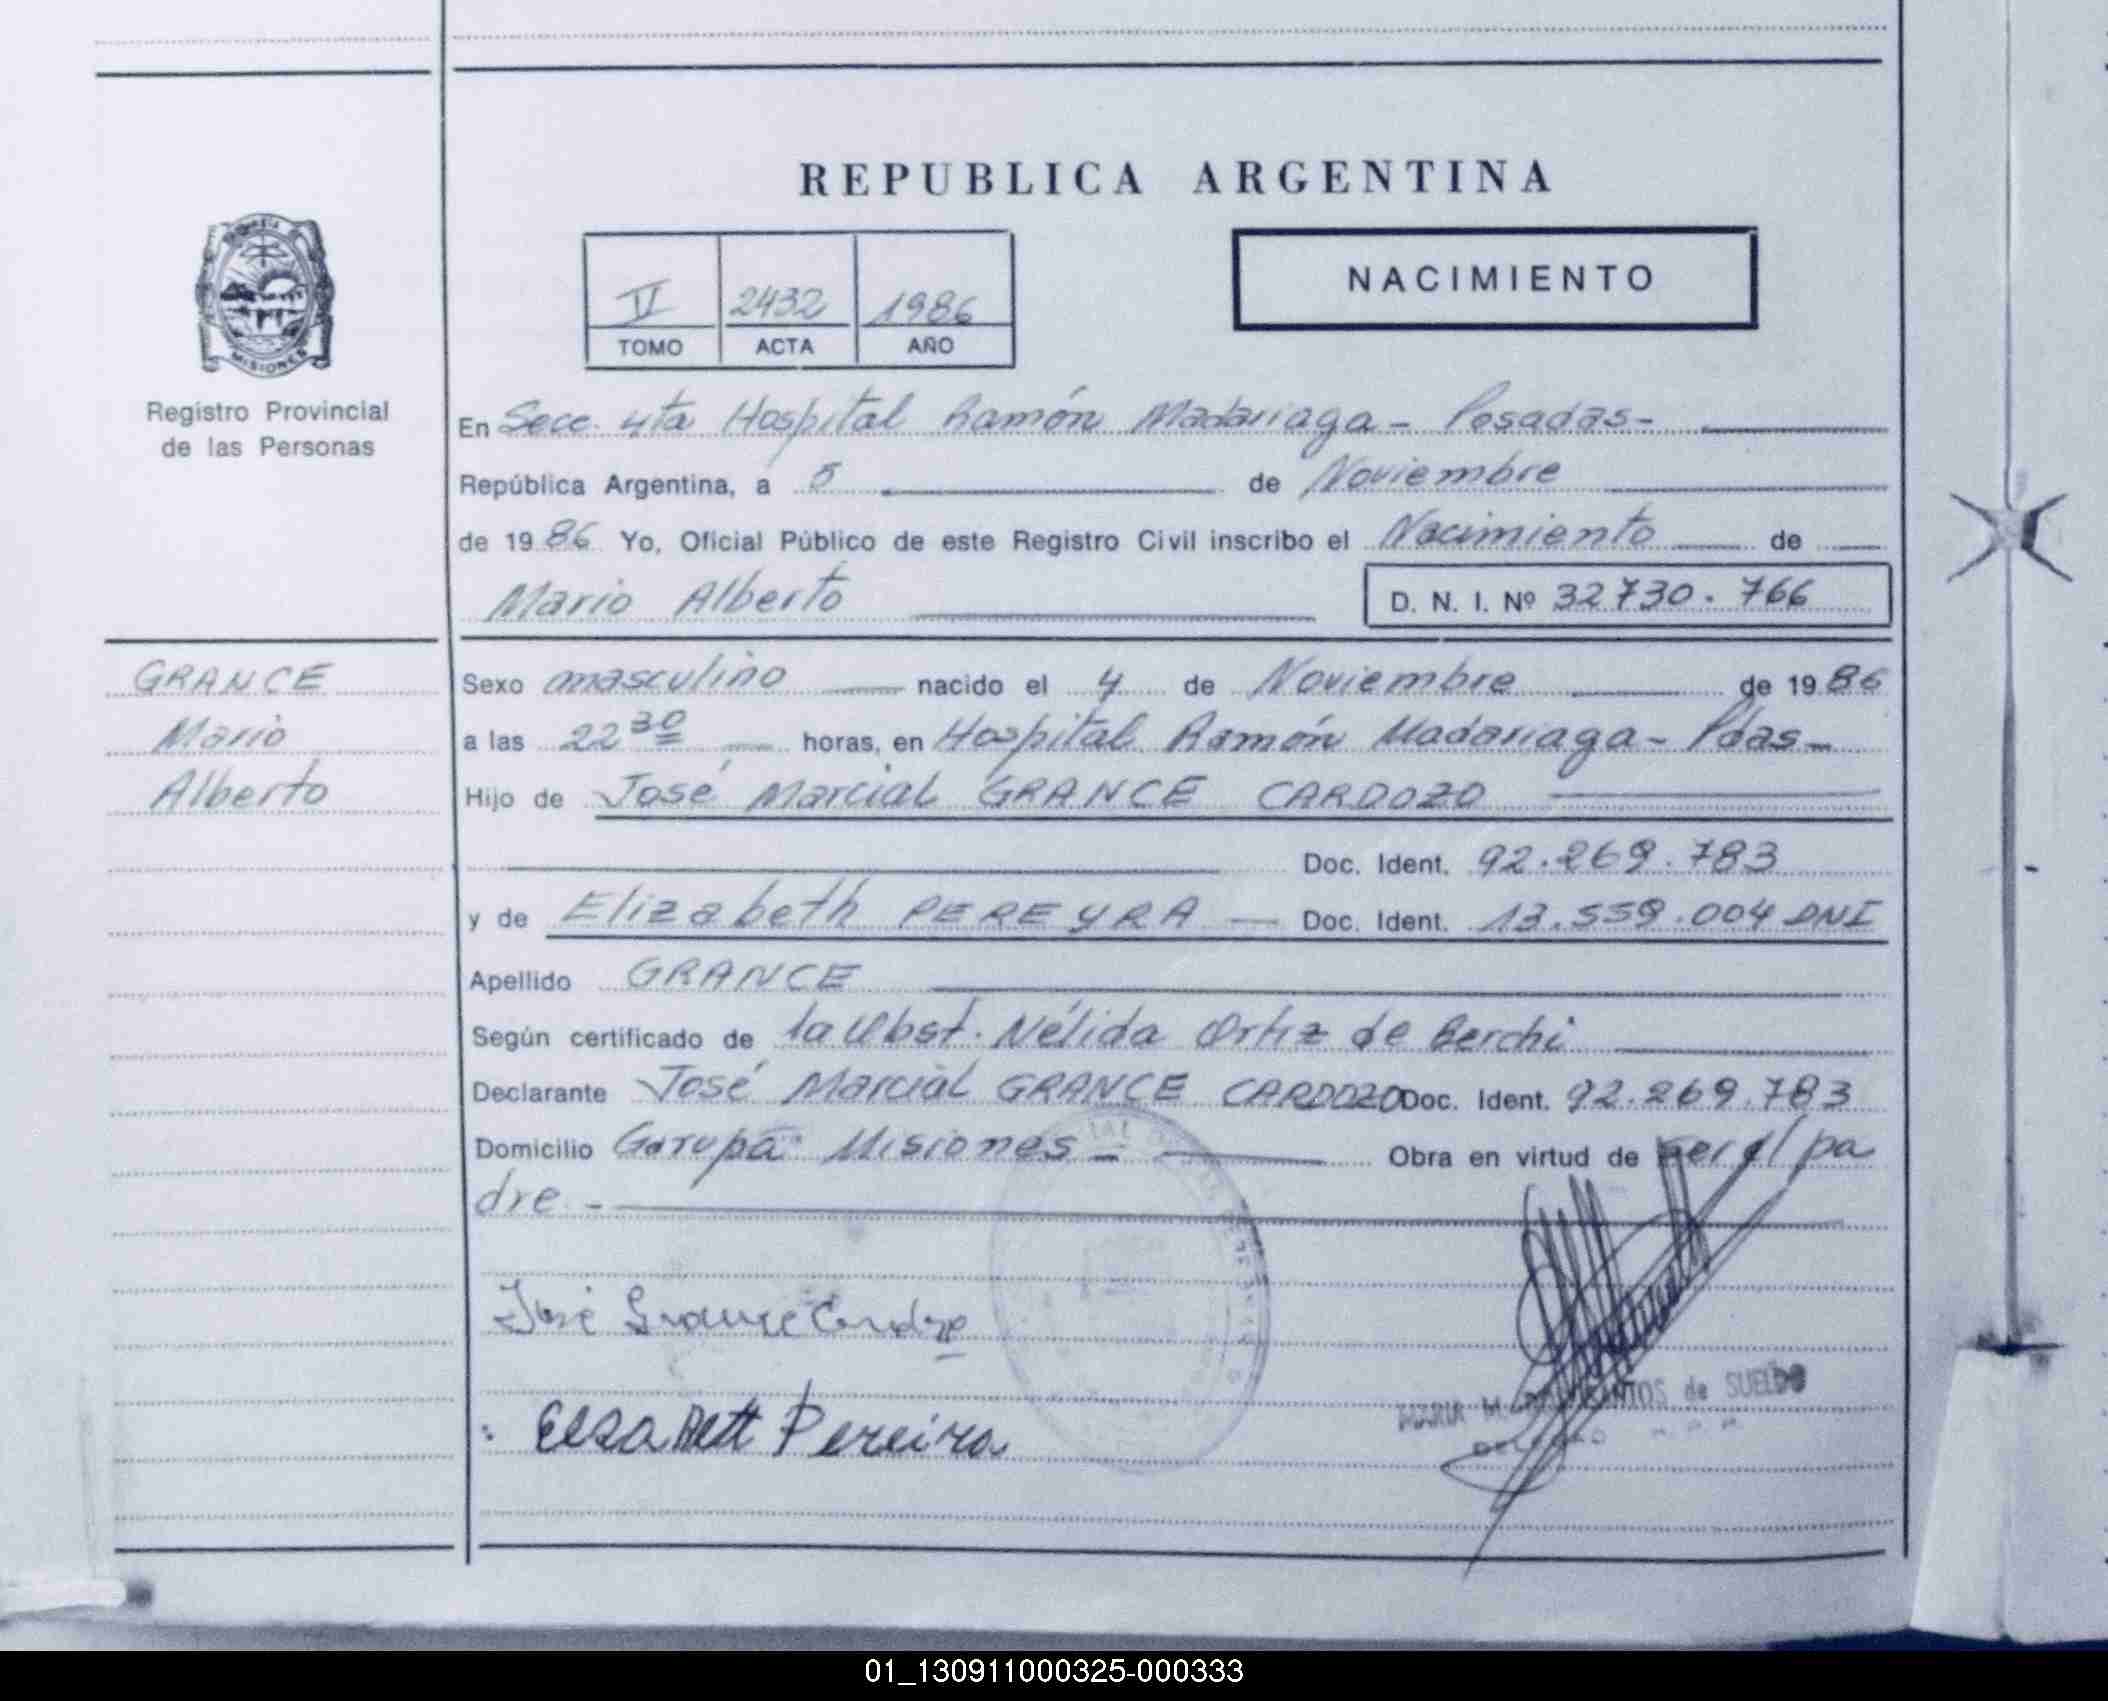 REPUBLICA ARGENTINA
NACIMIENTO
2432 1986
TOMO ACTA AÑO
MISIONES
Registro Provincial
de las Personas
En Secc. 4ta Hospital Ramón Madariaga - Posadas -
República Argentina, a 5 de Noviembre
de 1986 Yo, Oficial Público de este Registro Civil inscribo el Nacimiento de
Mario Alberto D. N. I. Nº 32730.766
GRANCE
Mario
Alberto
Sexo masculino nacido el 4 de Noviembre de 1986
a las 22 30 horas, en Hospital Ramón Madariaga - Pdas -
Hijo de José Marcial GRANCE CARDOZO
Doc. Ident. 92.269.783
y de Elizabeth PEREYRA Doc. Ident. 13.559.004 DNI
Apellido GRANCE
Según certificado de la Obst. Nélida Ortiz de Berchi
Declarante José Marcial GRANCE CARDOZO Doc. Ident. 92.269.783
Domicilio Garupá Misiones - Obra en virtud de ser el pa
dre -
José Grance Cardozo
MARIA M. de SUELDO
Pereira
01_130911000325-000333